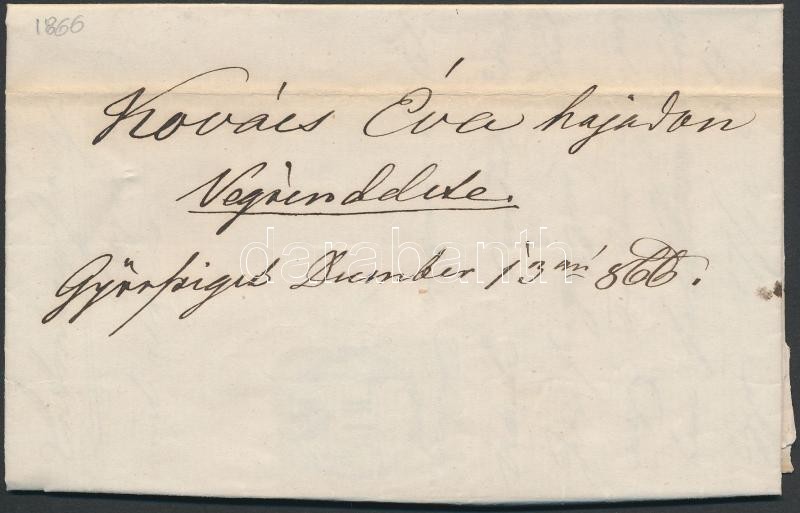 1866
Kovács Éva hajadon
Végrendelete.
Győrsziget December 13án 866.
darabanth.com